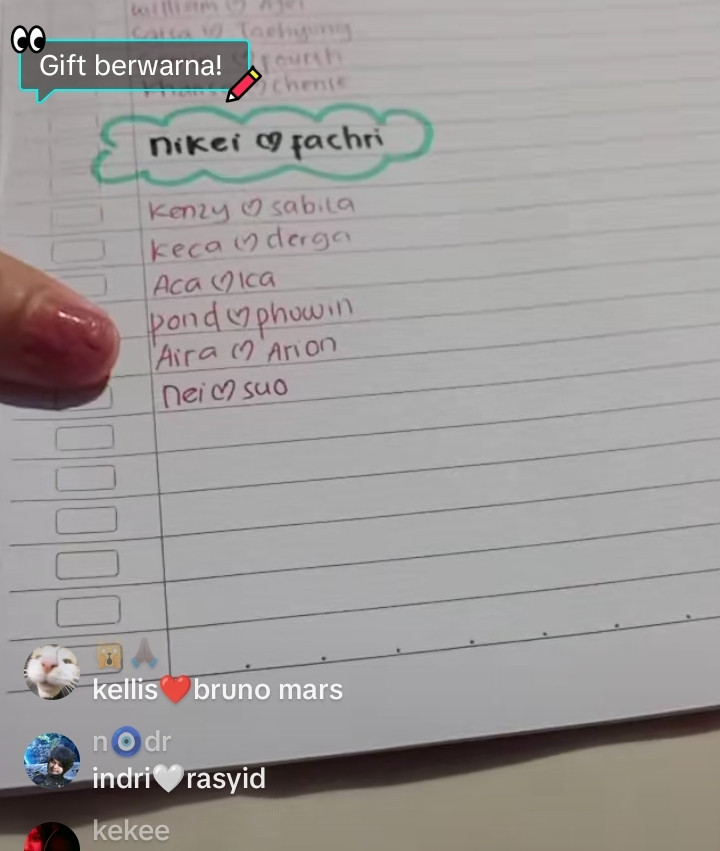 william ♡
Caca ♡ Taehyung
Gift berwarna!
nikei ♡ fachri
Kenzy ♡ sabila
keca ♡ derga
Aca ♡ Ica
pond ♡ phuwin
Aira ♡ Arion
nei ♡ suo
kellis❤️bruno mars
n🧿dr
indri🤍rasyid
kekee